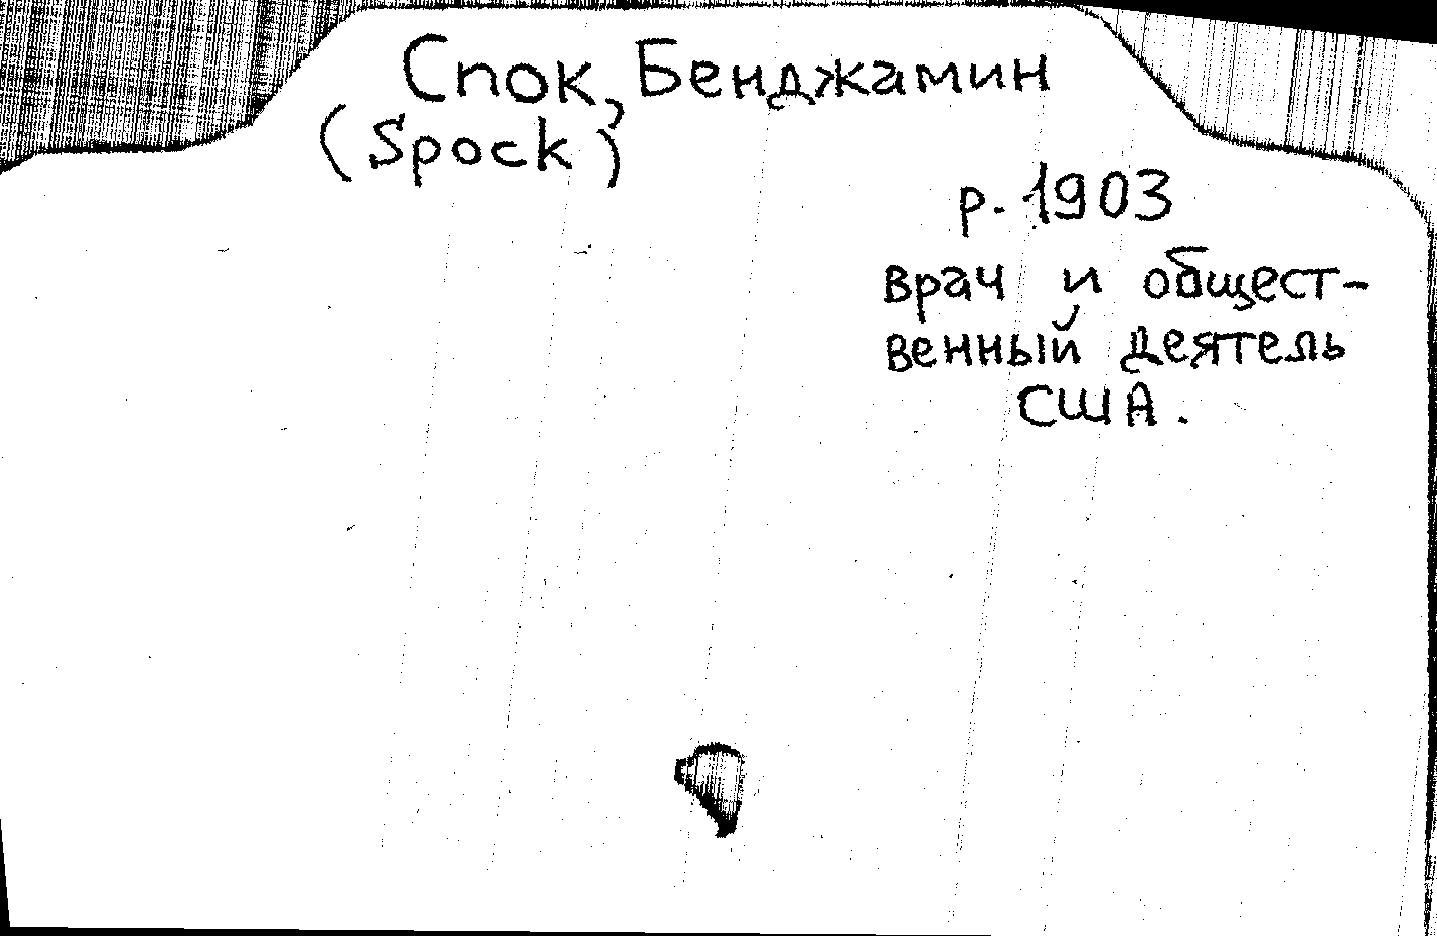 Спок, Бенджамин
(Spock)
р. 1903
врач и общест-
венный деятель
США.